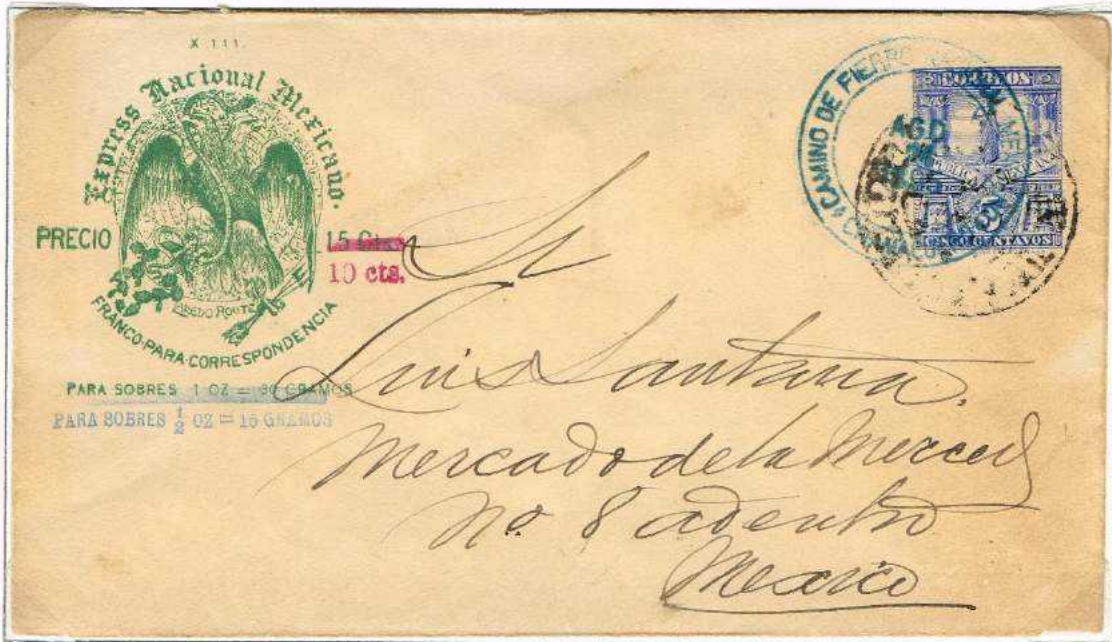 X 111.
Express Nacional Mexicano.
PRECIO 15 Cts.
10 cts.
LAREDO ROUTE
FRANCO·PARA·CORRESPONDENCIA
PARA SOBRES 1 OZ = 30 GRAMOS
PARA SOBRES 1/2 OZ = 15 GRAMOS
CAMINO DE FIERRO
AGO
CORREOS
CINCO CENTAVOS
Sr
Luis Santana.
Mercado de la Merced
No. 8 adentro
Mexico